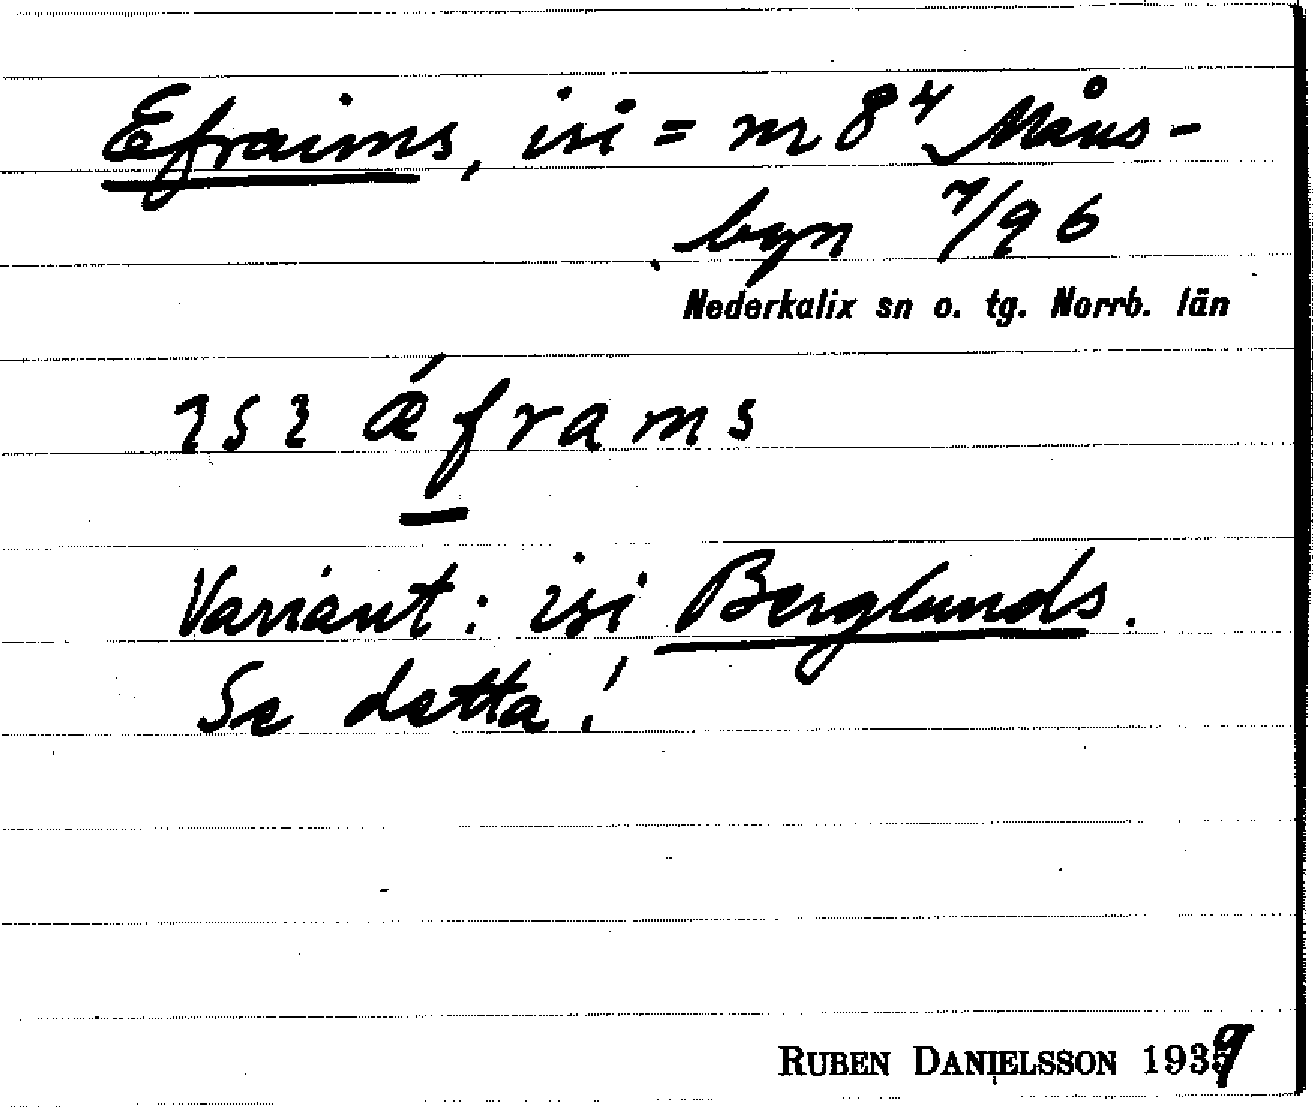 Efraims, isi = nr 8⁴ Måns-
byn 7/96
Nederkalix sn o. tg. Norrb. län
ɩsɩ ǽframs
Variant: isi Berglunds.
Se detta!
RUBEN DANIELSSON 1939